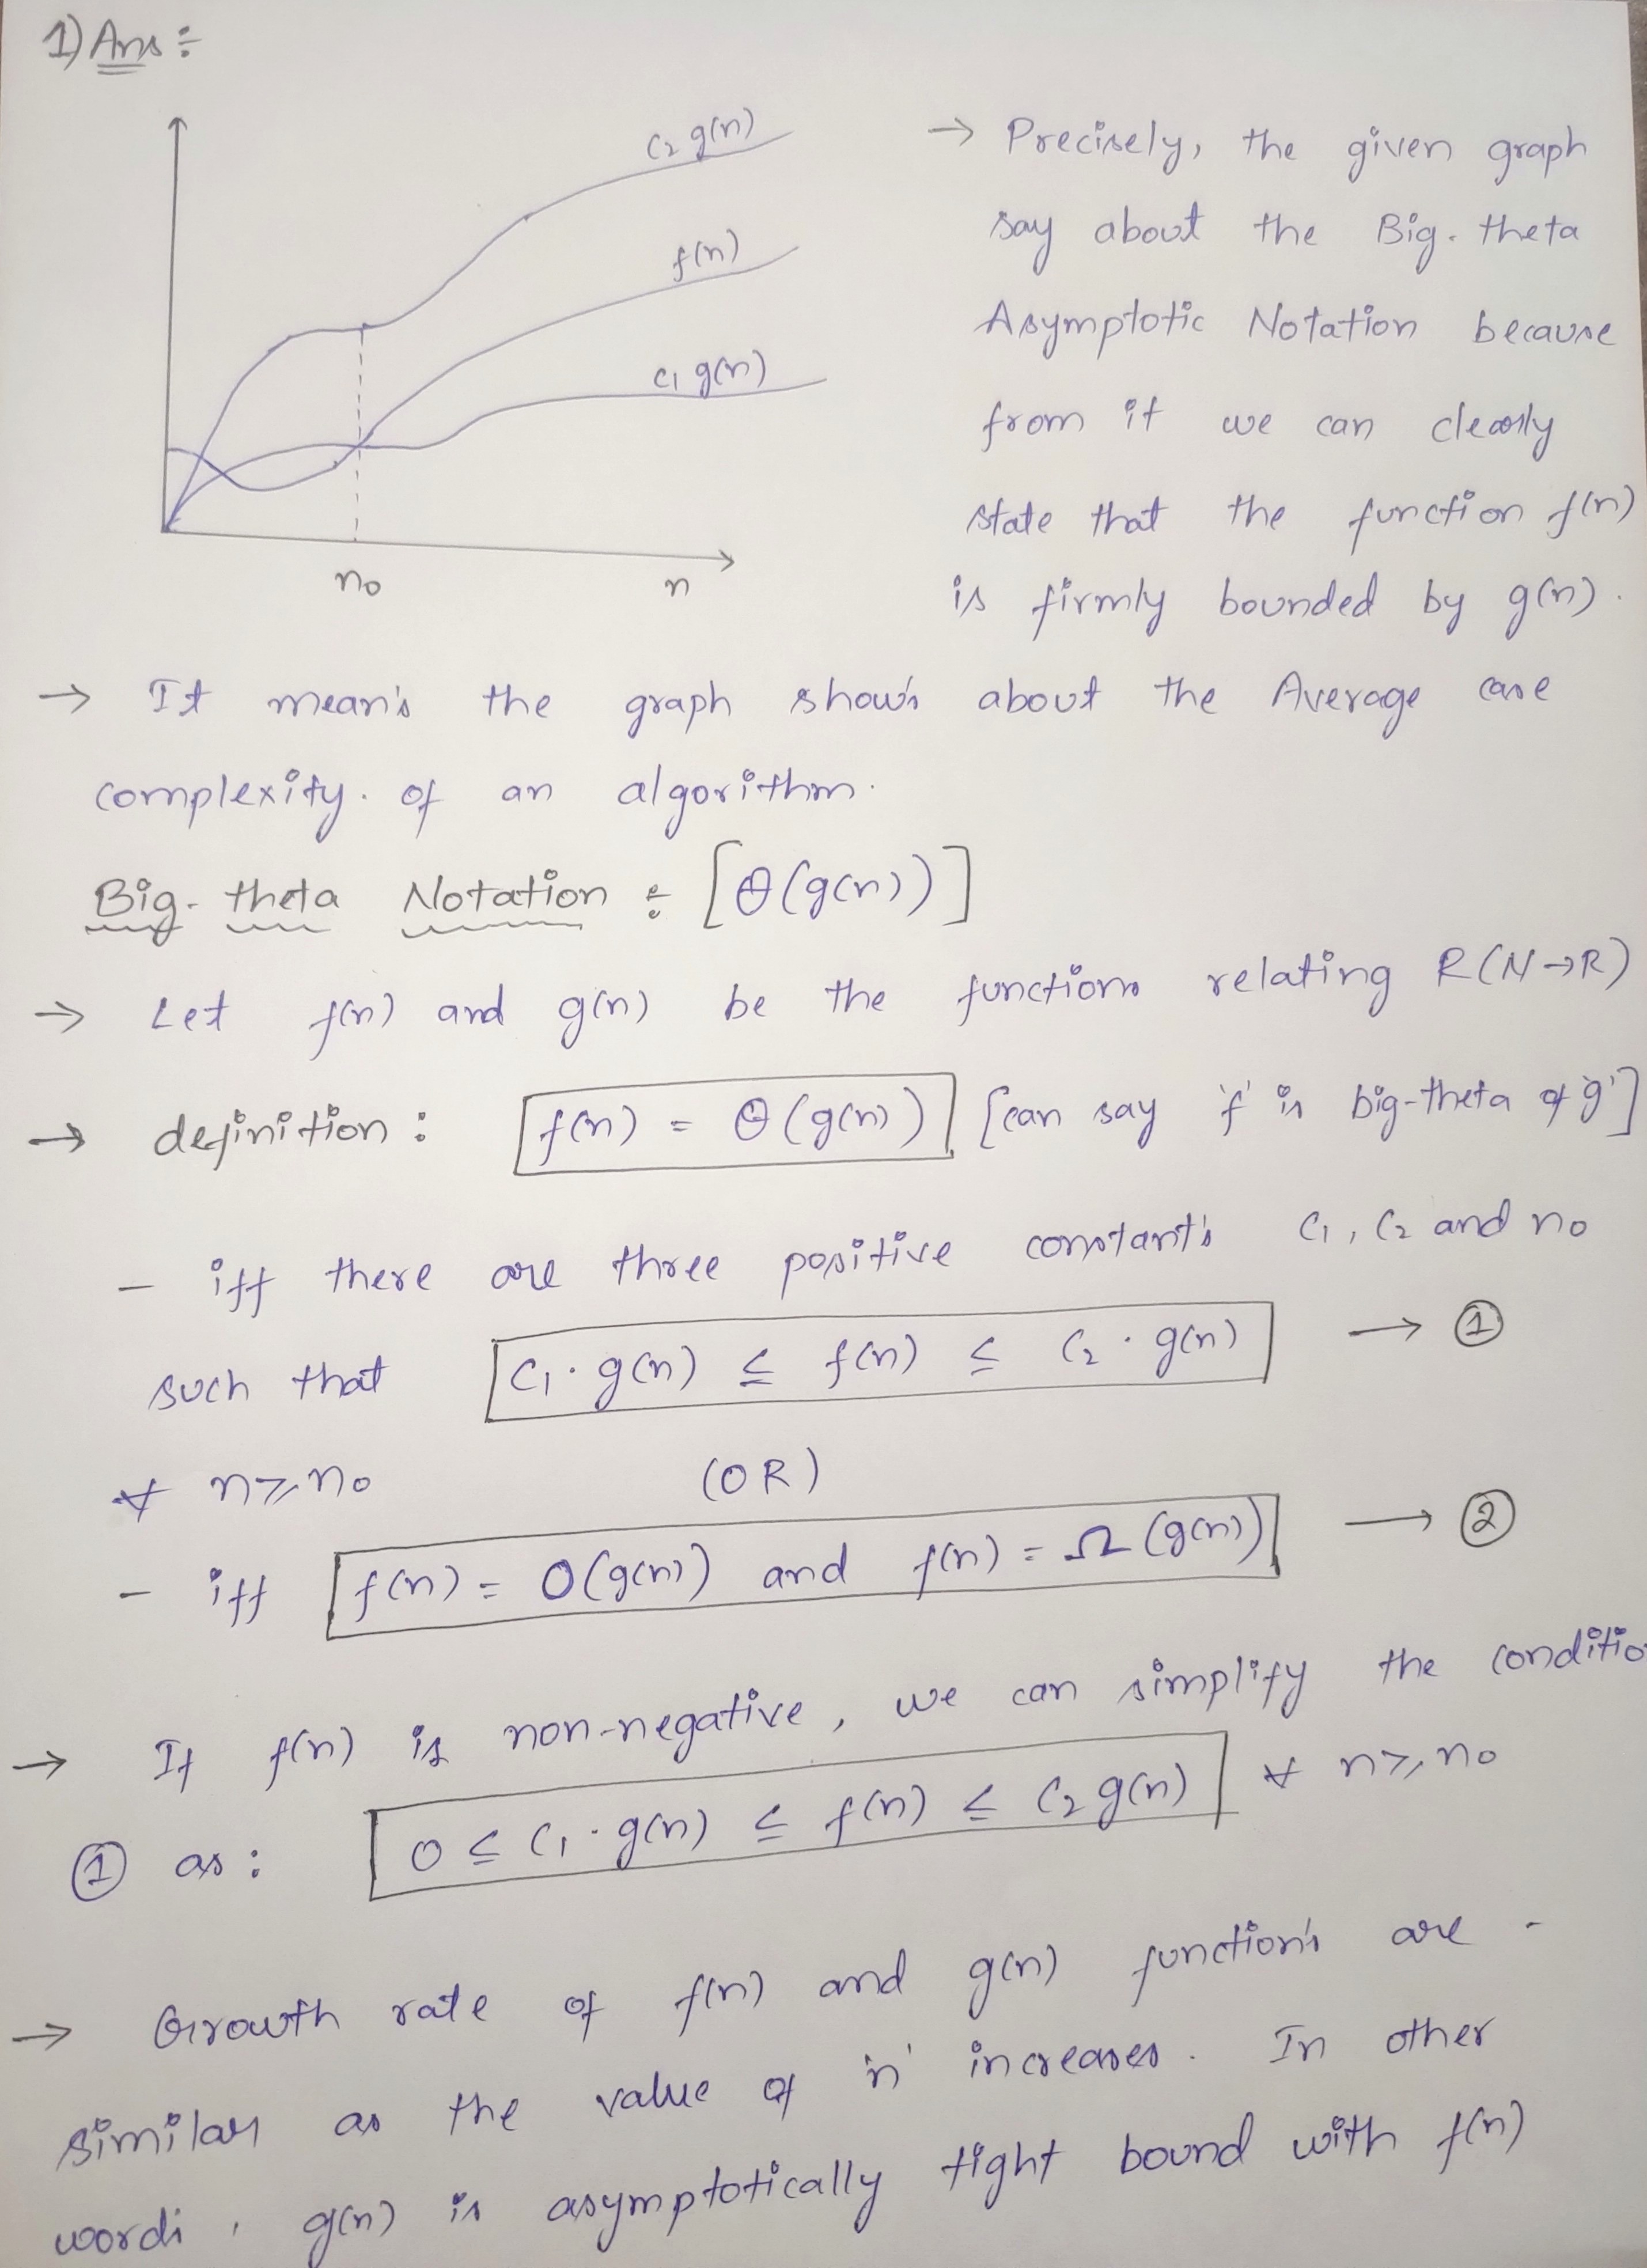 1) Ans :-
c₂ g(n)
f(n)
c₁ g(n)
n₀
n
→ Precisely, the given graph
say about the Big-theta
Asymptotic Notation because
from it we can clearly
state that the function f(n)
is firmly bounded by g(n).
→ It mean's the graph show's about the Average case
complexity. of an algorithm.
Big-theta Notation :- [θ(g(n))]
→ Let f(n) and g(n) be the functions relating R(N→R)
→ definition : f(n) = θ(g(n)) [can say 'f' is big-theta of 'g']
- iff there are three positive constant's c₁, c₂ and n₀
such that c₁·g(n) ≤ f(n) ≤ c₂·g(n) → ①
∀ n ≥ n₀ (OR)
- iff f(n) = O(g(n)) and f(n) = Ω(g(n)) → ②
→ If f(n) is non-negative, we can simplify the conditio
① as : 0 ≤ c₁·g(n) ≤ f(n) ≤ c₂ g(n) ∀ n ≥ n₀
→ Growth rate of f(n) and g(n) function's are -
similar as the value of 'n' increases. In other
words, g(n) is asymptotically tight bound with f(n)